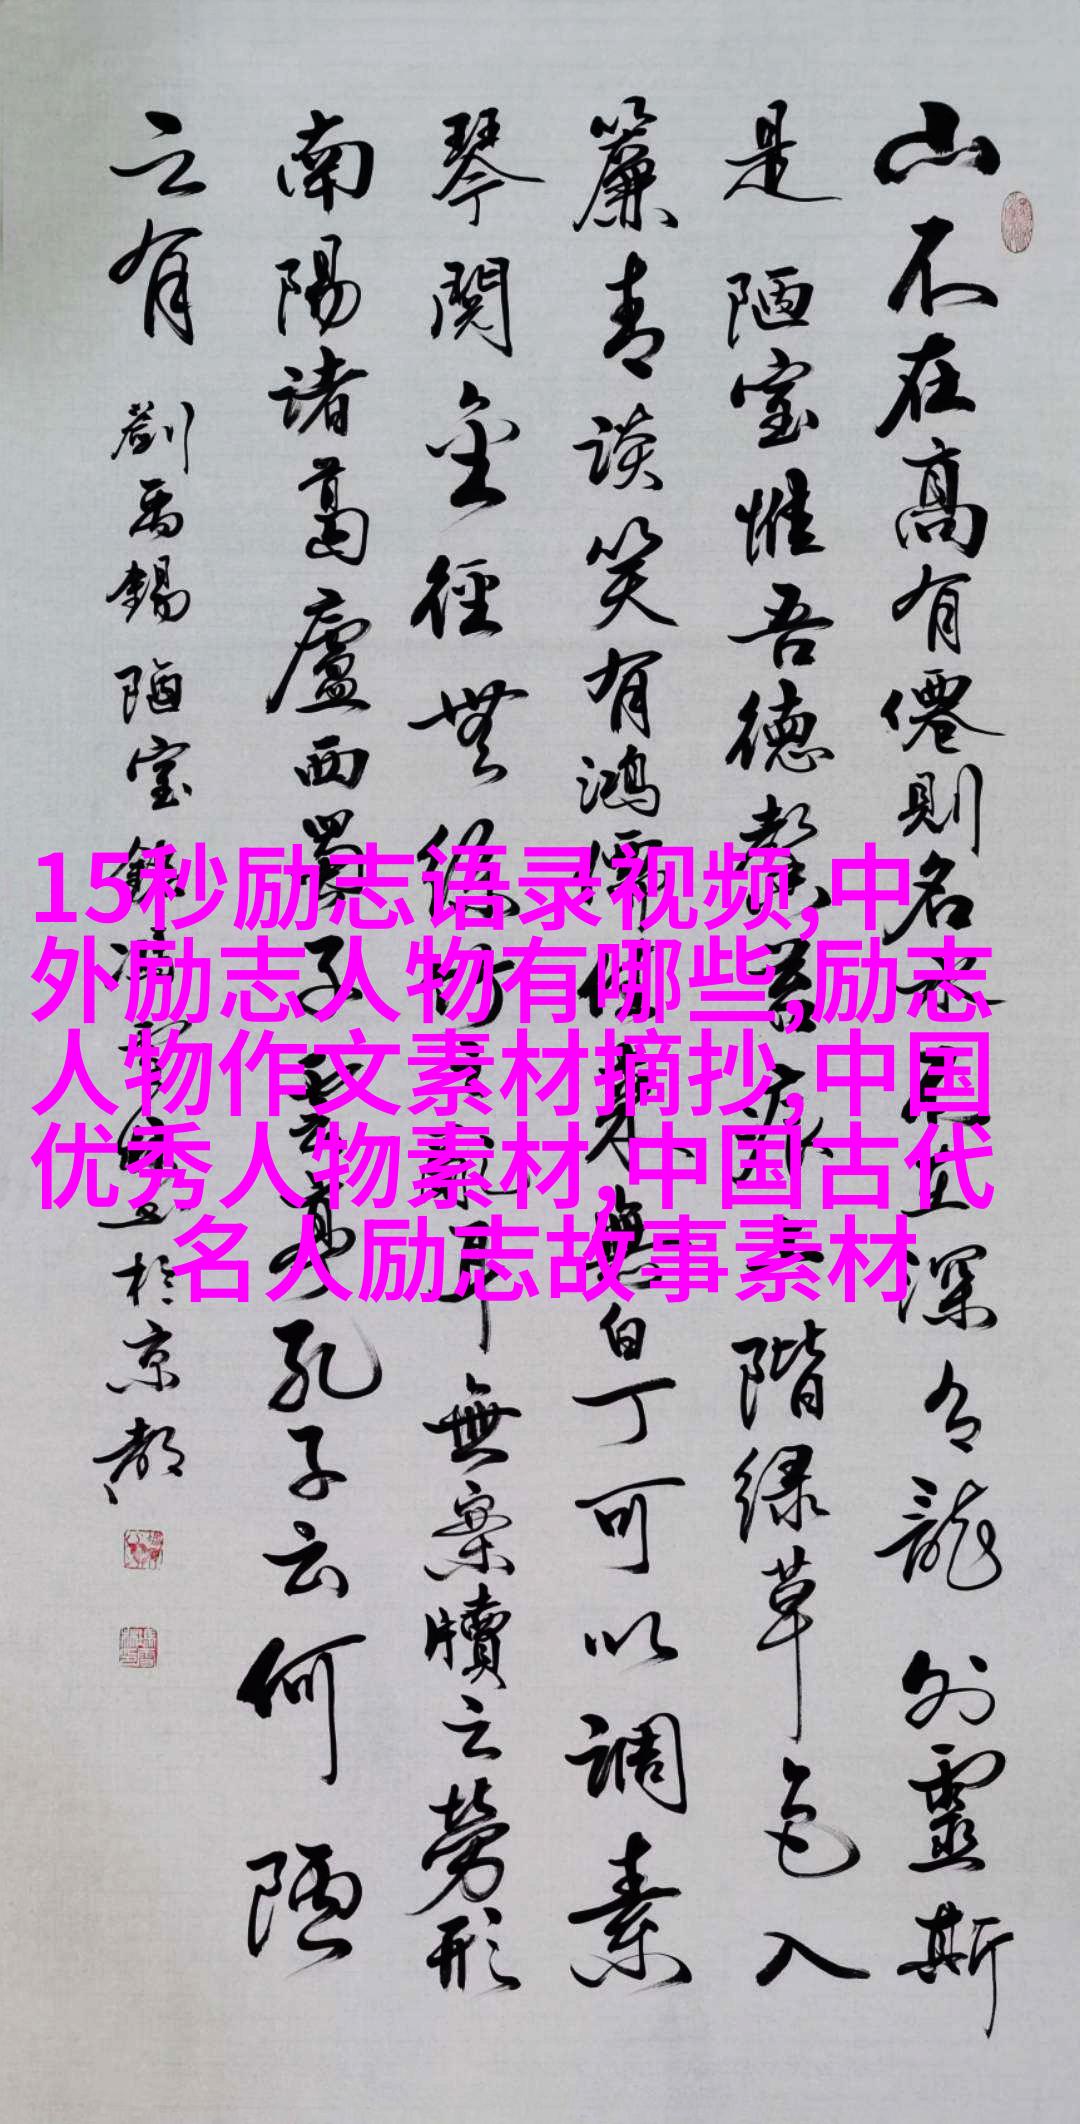 山不在高有僊則名水不在深有龍則靈斯
是陋室惟吾德馨苔痕上階緑草色入
簾青談笑有鴻儒往来無白丁可以調素
琴閱金徑無絲竹之乱耳無案牘之勞形
南陽諸葛廬西蜀子雲亭孔子云何陋
之有 劉禹錫陋室銘 於京都
15秒励志语录视频,中
外励志人物有哪些,励志
人物作文素材摘抄,中国
优秀人物素材,中国古代
名人励志故事素材